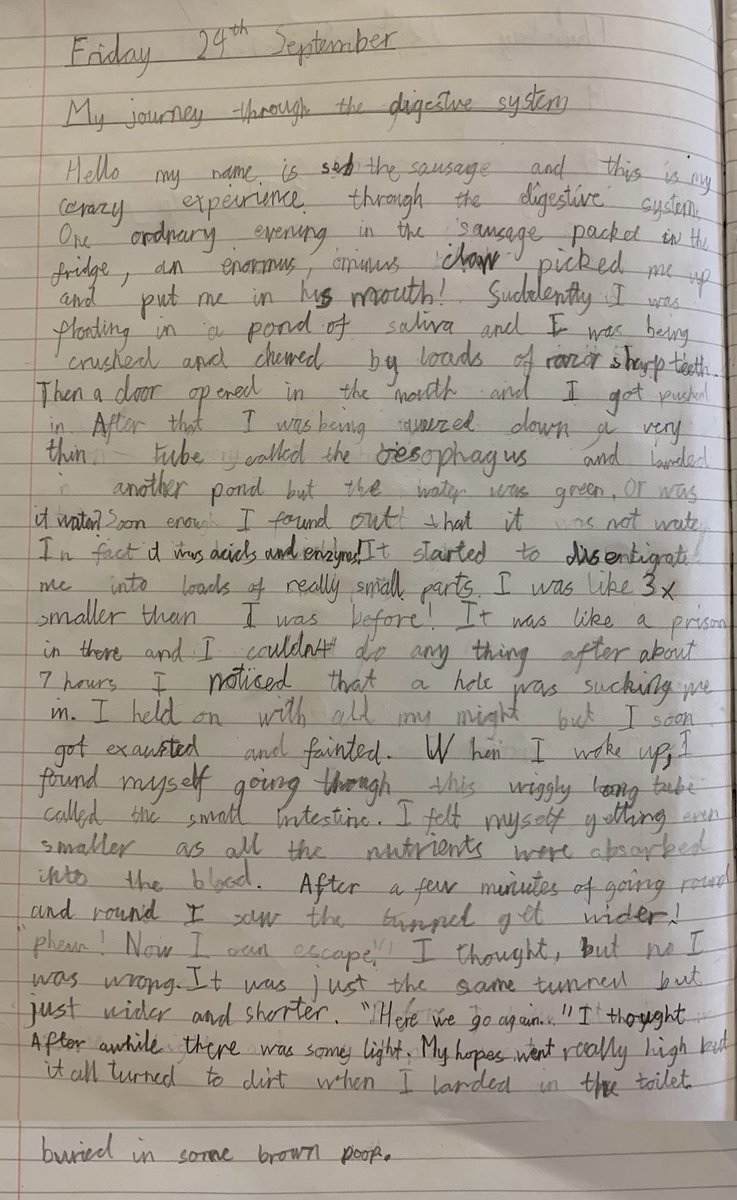 Friday 24th September
My journey through the digestve system
Hello my name is seb the sausage and this is my
crazy expeirience through the digestive system.
One ordnary evening in the sausage packed in the
fridge, an enormus, ominus claw picked me up
and put me in his mouth! Suddently I was
floating in a pond of saliva and I was being
crushed and chewed by loads of razor sharp teeth.
Then a door opened in the mouth and I got pushed
in. After that I was being down a very
thin tube called the oesophagus and landed
in another pond but the water was green. Or was
it water? Soon enough I found out that it was not water
In fact it was acids and enzymes! It started to disentigrate
me into loads of really small parts. I was like 3x
smaller than I was before! It was like a prison
in there and I couldn't do any thing after about
7 hours I noticed that a hole was sucking me
in. I held on with all my might but I soon
got exausted and fainted. When I woke up, I
found myself going though this wiggly long tube
called the small intestine. I felt myself getting even
smaller as all the nutrients were absorbed
into the blood. After a few minutes of going round
and round I saw the tunnel get wider!
"phew! Now I can escape!" I thought, but no I
was wrong. It was just the same tunnel but
just wider and shorter. "Here we go again.." I thought
After awhile there was some light. My hopes went really high but
it all turned to dirt when I landed in the toilet
buried in some brown poop.